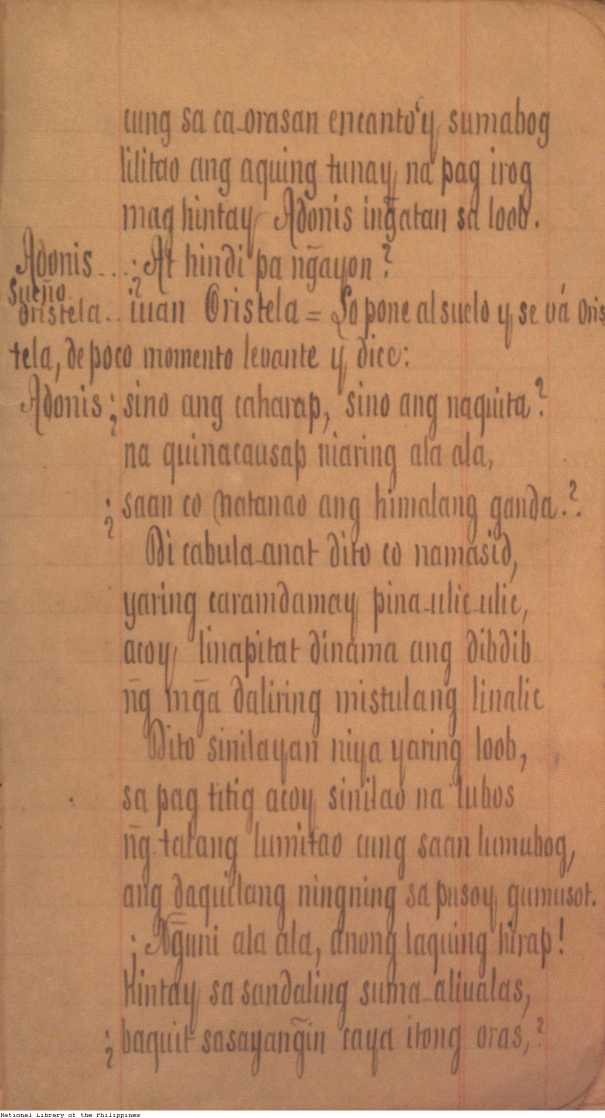 cung sa ca-orasan encanto'y sumabog
lilitao ang aquing tunay na pag irog
mag hintay Adonis ingatan sa loob.
Adonis... ¿At hindi pa ñgayon?
Sueño
Oristela.. iuan Oristela = So pone al suelo y se vá Oris
tela, de poco momento levante y dice:
Adonis ¿sino ang caharap, sino ang naquita?
na quinacausap niaring ala ala,
¿saan co natanao ang himalang ganda.?
Di cabula-anat dito co namasid,
yaring caramdamay pina-ulic-ulic,
acoy linapitat dinama ang dibdib
ñg mg̃a daliring mistulang linalic
Dito sinilayan niya yaring loob,
sa pag titig acoy sinilao na lubos
ñg talang lumitao cung saan lumubog,
ang daquilang ningning sa pusoy gumusot.
¡Ng̃uni ala ala, anong laquing hirap!
hintay sa sandaling suma-aliualas,
¿baquit sasayang̃in caya itong oras,?
National Library of the Philippines